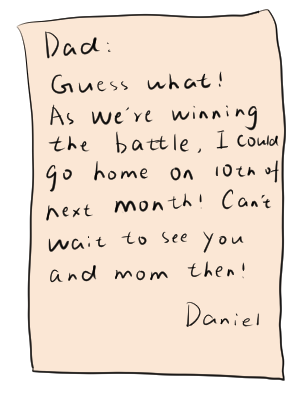 Dad:
Guess what!
As we're winning
the battle, I could
go home on 10th of
next month! Can't
wait to see you
and mom then!
Daniel